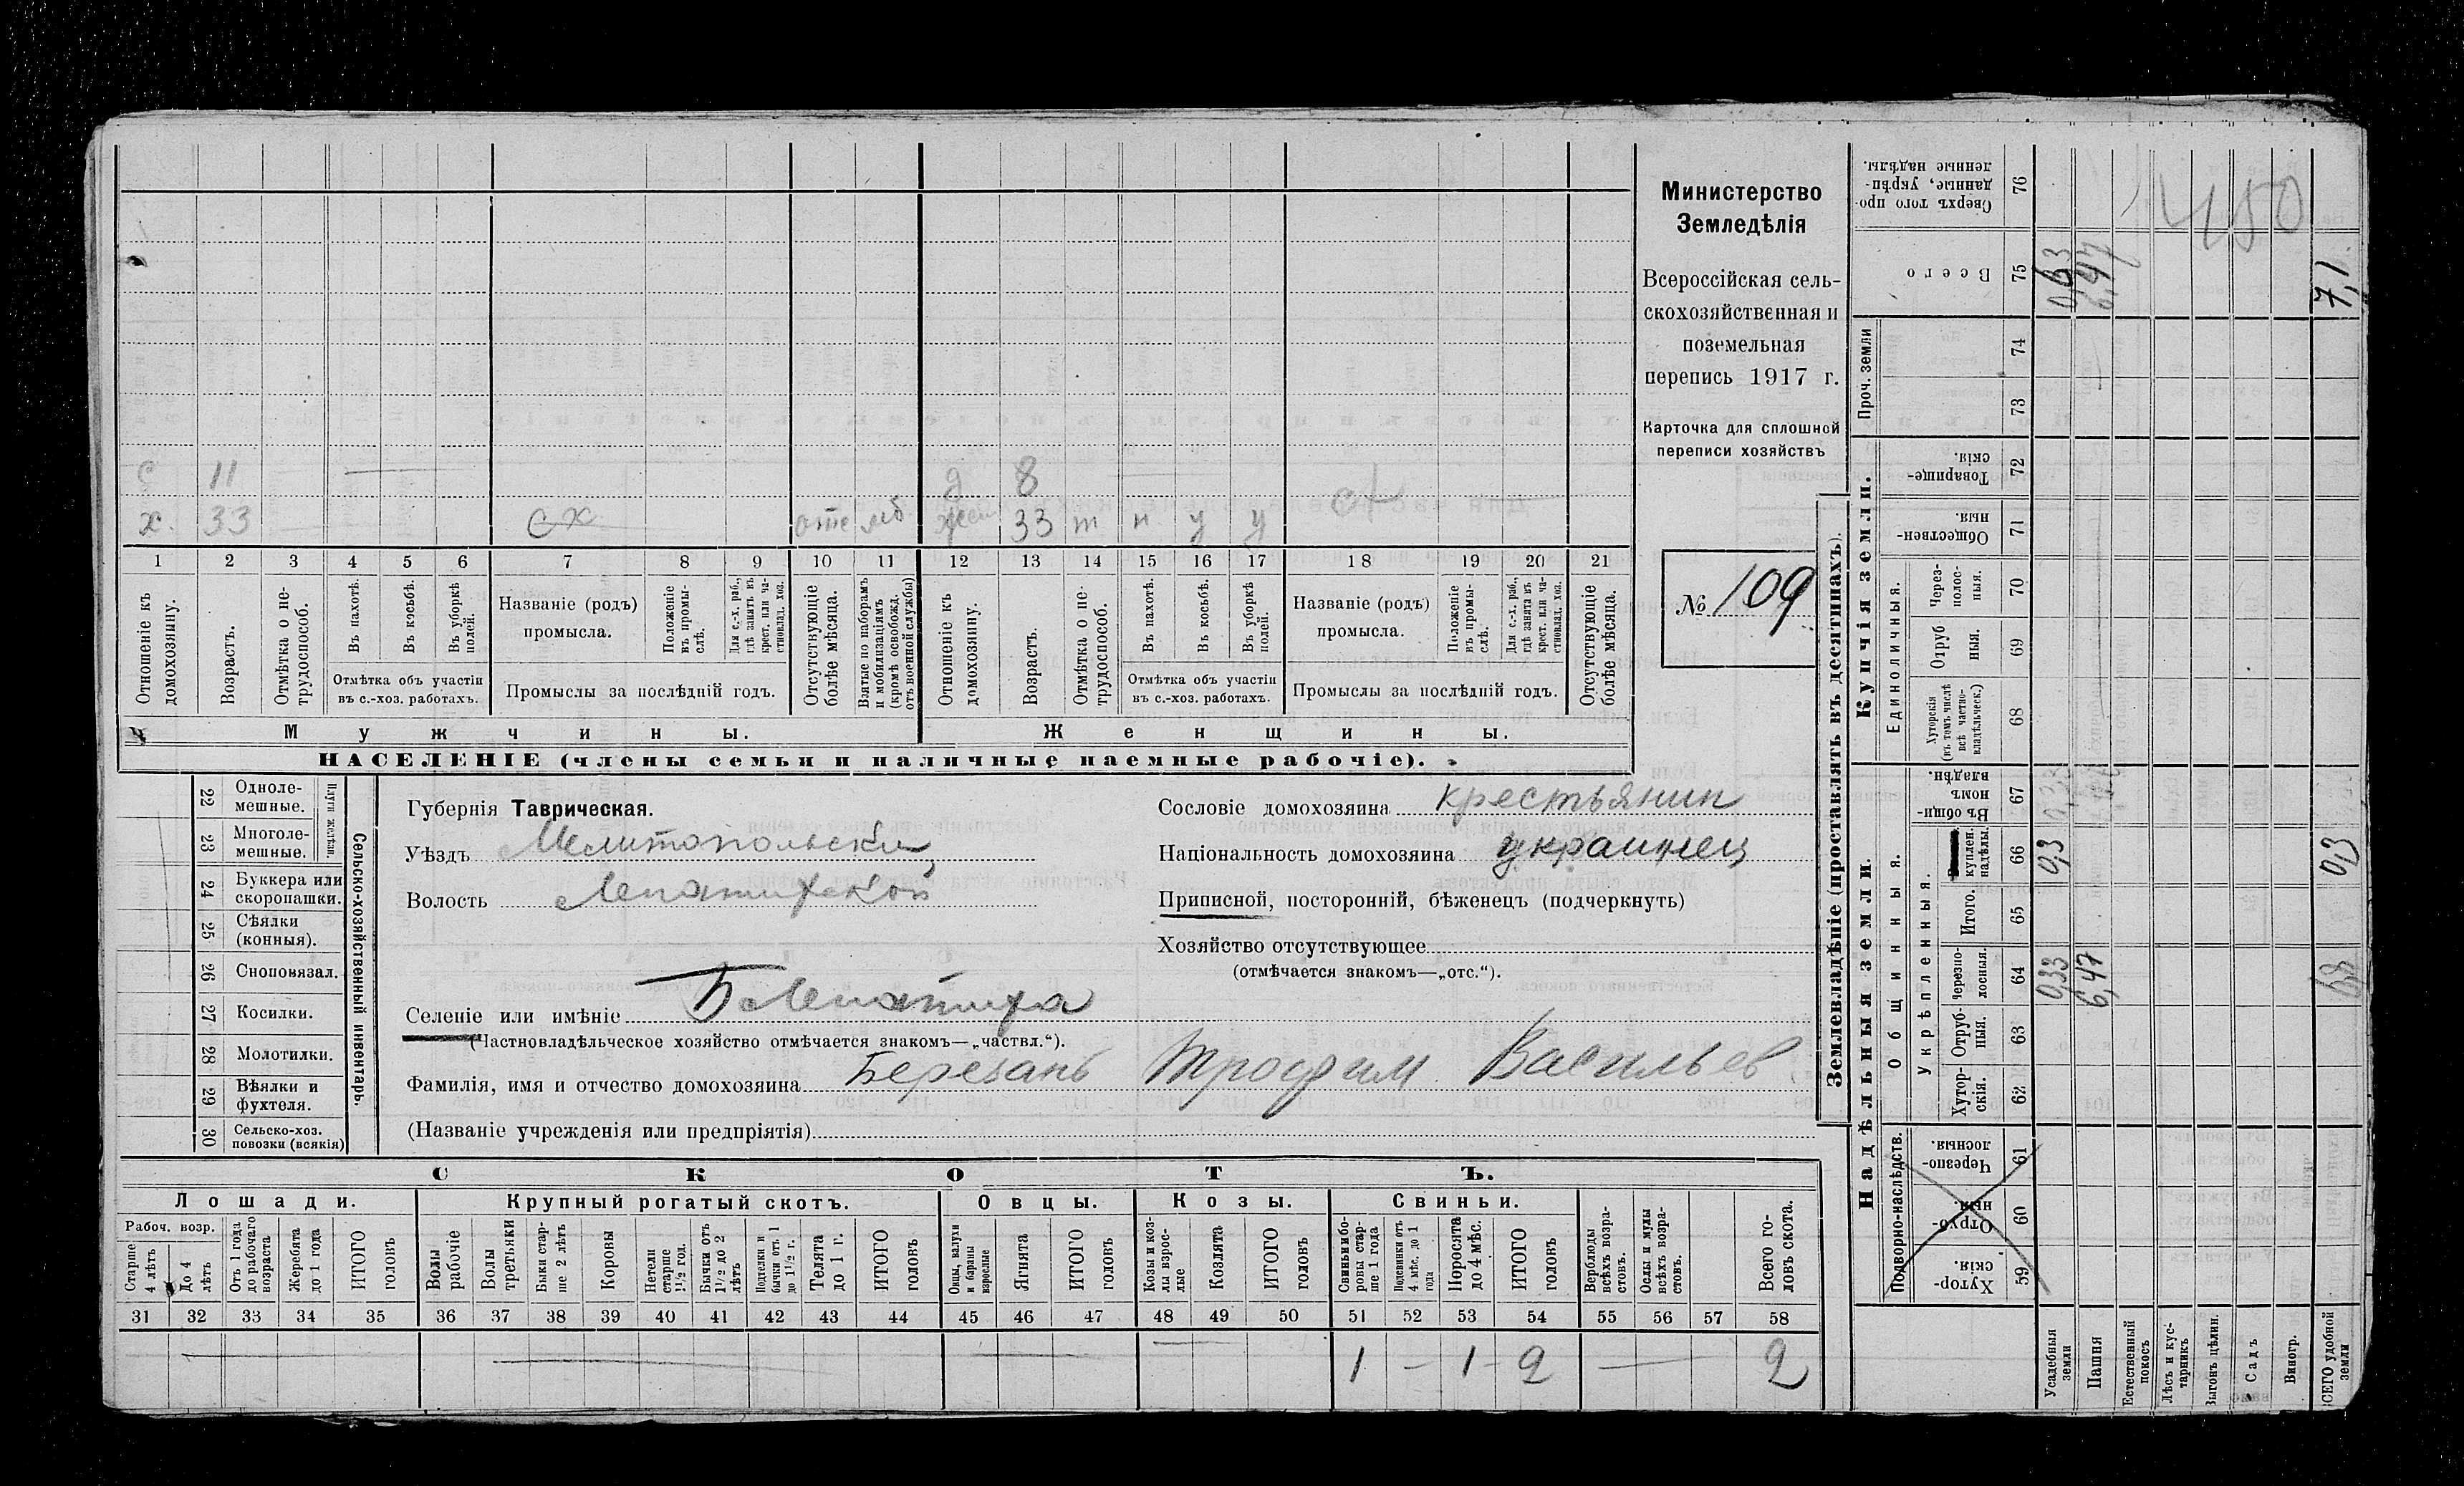 с 11 — д 8 —
х. 33 сх отс мб жен 33 т н у у сх
1 2 3 4 5 6 7 8 9 10 11 12 13 14 15 16 17 18 19 20 21
Отношеніе къ домохозяину.
Возрастъ.
Отмѣтка о нетрудоспособ.
Въ пахотѣ.
Въ косьбѣ.
Въ уборкѣ полей.
Отмѣтка объ участіи
въ с.-хоз. работахъ.
Названіе (родъ)
промысла.
Положеніе въ промыслѣ.
Для с.-х. раб., гдѣ занятъ въ крест. или частновлад. хоз.
Промыслы за послѣдній годъ.
Отсутствующіе болѣе мѣсяца.
Взятые по наборамъ и мобилизаціямъ (кромѣ освобожд. отъ военной службы)
Отношеніе къ домохозяину.
Возрастъ.
Отмѣтка о нетрудоспособ.
Въ пахотѣ.
Въ косьбѣ.
Въ уборкѣ полей.
Отмѣтка объ участіи
въ с.-хоз. работахъ.
Названіе (родъ)
промысла.
Положеніе въ промыслѣ.
Для с.-х. раб., гдѣ занята въ крест. или частновлад. хоз.
Промыслы за послѣдній годъ.
Отсутствующіе болѣе мѣсяца.
Мужчины.
Женщины.
НАСЕЛЕНІЕ (члены семьи и наличные наемные рабочіе).
Министерство
Земледѣлія
Всероссійская сель-
скохозяйственная и
поземельная
перепись 1917 г.
Карточка для сплошной
переписи хозяйствъ
№ 109
22 Одноле-
мешные.
23 Многоле-
мешные.
Плуги желѣзн.
24 Буккера или
скоропашки.
25 Сѣялки
(конныя).
26 Сноповязал.
27 Косилки.
28 Молотилки.
29 Вѣялки и
фухтеля.
30 Сельско-хоз.
повозки (всякія)
Сельско-хозяйственный инвентарь.
Губернія Таврическая.
Уѣздъ Мелитопольский
Волость Лепатихской
Селеніе или имѣніе Б Лепатиха
(Частновладѣльческое хозяйство отмѣчается знакомъ—„частвл.“).
Фамилія, имя и отчество домохозяина Березань Трофим Васильев
(Названіе учрежденія или предпріятія)
Сословіе домохозяина крестьянин
Національность домохозяина украинец
Приписной, посторонній, бѣженецъ (подчеркнуть)
Хозяйство отсутствующее
(отмѣчается знакомъ—„отс.“).
СКОТЪ.
Лошади. Крупный рогатый скотъ. Овцы. Козы. Свиньи.
Рабоч. возр.
Старше 4 лѣтъ
До 4 лѣтъ
Отъ 1 года до рабочаго возраста
Жеребята до 1 года
ИТОГО головъ
Волы рабочіе
Волы третьяки
Быки старше 2 лѣтъ
Коровы
Нетели старше 1½ год.
Бычки отъ 1½ до 2 лѣтъ
Подтелки и бычки отъ 1 до 1½ г.
Телята до 1 г.
ИТОГО головъ
Овцы, валухи и бараны взрослые
Ягнята
ИТОГО головъ
Козы и козлы взрослые
Козлята
ИТОГО головъ
Свиньи и боровы старше 1 года
Подсвинки отъ 4 мѣс. до 1 года
Поросята до 4 мѣс.
ИТОГО головъ
Верблюды всѣхъ возрастовъ.
Ослы и мулы всѣхъ возрастовъ.
Всего головъ скота.
31 32 33 34 35 36 37 38 39 40 41 42 43 44 45 46 47 48 49 50 51 52 53 54 55 56 57 58
— — — — 1 — 1 2 — 2
Землевладѣніе (проставлять въ десятинахъ).
Купчія земли.
Надѣльныя земли.
Проч. земли
Единоличныя.
Общинныя.
Укрѣпленныя.
Подворно-наслѣдств.
Сверхъ того проданные, укрѣпленные надѣлы. 76
Всего 75
74
73
Товарищескія. 72
Общественныя. 71
Черезполосныя. 70
Отрубныя. 69
Хуторскія (въ томъ числѣ всѣ частновладѣльческ.) 68
Въ общинномъ владѣн. 67
куплен. надѣлы. 66
Итого. 65
Черезполосныя. 64
Отрубныя. 63
Хуторскія. 62
Черезполосныя. 61
Отрубныя. 60
Хуторскія. 59
Усадебныя земли
Пашня
Естественный покосъ
Лѣсъ и кустарникъ
Выгонъ цѣлин.
Садъ
Виногр.
ВСЕГО удобной земли
450
0,63
6,47
7,1
0,3
0,3
0,33
6,47
6,8